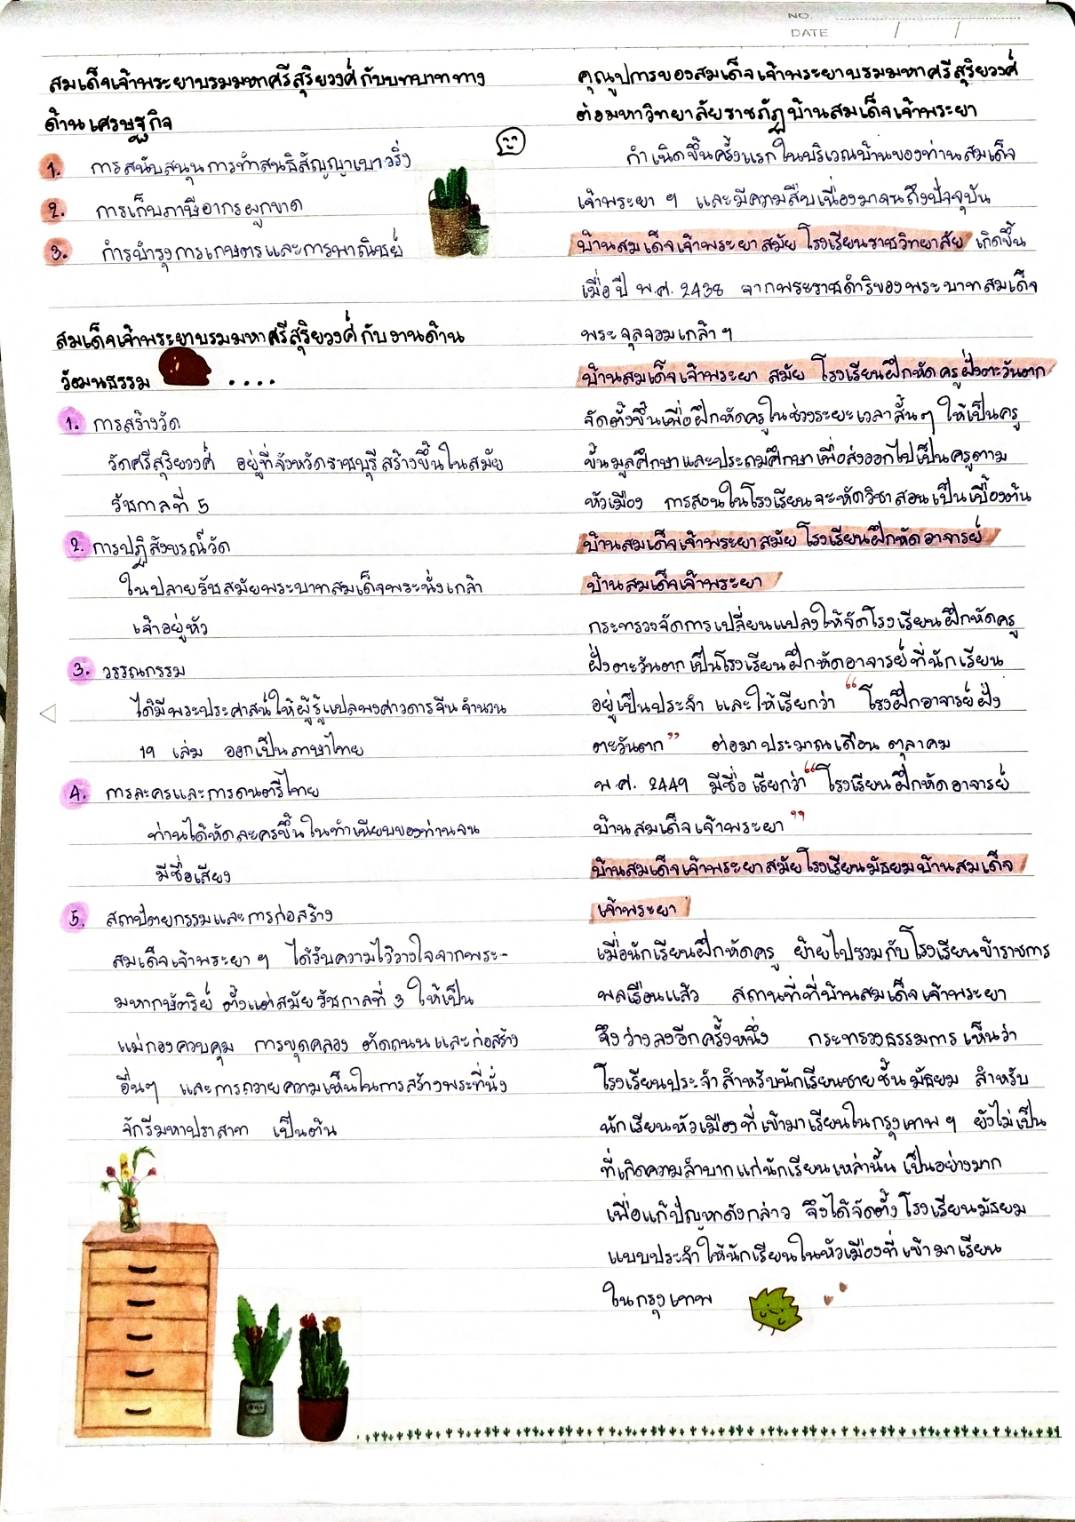 NO.
DATE / /
สมเด็จเจ้าพระยาบรมมหาศรีสุริยวงศ์กับบทบาททาง
ด้านเศรษฐกิจ
1. การสนับสนุนการทำสนธิสัญญาเบาว์ริ่ง
2. การเก็บภาษีอากรผูกขาด
3. การบำรุงการเกษตรและการพาณิชย์
สมเด็จเจ้าพระยาบรมมหาศรีสุริยวงศ์กับงานด้าน
วัฒนธรรม ....
1. การสร้างวัด
วัดศรีสุริยวงศ์ อยู่ที่จังหวัดราชบุรีสร้างขึ้นในสมัย
รัชกาลที่ 5
2. การปฏิสังขรณ์วัด
ในปลายรัชสมัยพระบาทสมเด็จพระนั่งเกล้า
เจ้าอยู่หัว
3. วรรณกรรม
ได้มีพระประศาสน์ให้ผู้รู้แปลพงศาวดารจีนจำนวน
19 เล่ม ออกเป็นภาษาไทย
4. การละครและการดนตรีไทย
ท่านได้หัดละครขึ้นในทำเนียบของท่านจน
มีชื่อเสียง
5. สถาปัตยกรรมและการก่อสร้าง
สมเด็จเจ้าพระยา ฯ ได้รับความไว้วางใจจากพระ-
มหากษัตริย์ ตั้งแต่สมัยรัชกาลที่ 3 ให้เป็น
แม่กองควบคุม การขุดคลอง ตัดถนนและก่อสร้าง
อื่นๆ และการถวายความเห็นในการสร้างพระที่นั่ง
จักรีมหาปราสาท เป็นต้น
คุณูปการของสมเด็จเจ้าพระยาบรมมหาศรีสุริยวงศ์
ต่อมหาวิทยาลัยราชภัฏบ้านสมเด็จเจ้าพระยา
กำเนิดขึ้นครั้งแรกในบริเวณบ้านของท่านสมเด็จ
เจ้าพระยา ฯ และมีความสืบเนื่องมาจนถึงปัจจุบัน
บ้านสมเด็จเจ้าพระยาสมัย โรงเรียนราชวิทยาลัย เกิดขึ้น
เมื่อปี พ.ศ. 2438 จากพระราชดำริของพระบาทสมเด็จ
พระจุลจอมเกล้าฯ
บ้านสมเด็จเจ้าพระยา สมัย โรงเรียนฝึกหัดครูฝั่งตะวันตก
จัดตั้งขึ้นเพื่อฝึกหัดครูในช่วงระยะเวลาสั้นๆ ให้เป็นครู
ขั้นมูลศึกษาและประถมศึกษาเพื่อส่งออกไปเป็นครูตาม
หัวเมือง การสอนในโรงเรียนจะหัดวิชาสอนเป็นเบื้องต้น
บ้านสมเด็จเจ้าพระยาสมัยโรงเรียนฝึกหัดอาจารย์
บ้านสมเด็จเจ้าพระยา
กระทรวงจัดการเปลี่ยนแปลงให้จัดโรงเรียนฝึกหัดครู
ฝั่งตะวันตกเป็นโรงเรียนฝึกหัดอาจารย์ที่นักเรียน
อยู่เป็นประจำ และให้เรียกว่า “โรงฝึกอาจารย์ฝั่ง
ตะวันตก” ต่อมาประมาณเดือน ตุลาคม
พ.ศ. 2449 มีชื่อเรียกว่า “โรงเรียนฝึกหัดอาจารย์
บ้านสมเด็จเจ้าพระยา”
บ้านสมเด็จเจ้าพระยาสมัยโรงเรียนมัธยมบ้านสมเด็จ
เจ้าพระยา
เมื่อนักเรียนฝึกหัดครู ย้ายไปรวมกับโรงเรียนข้าราชการ
พลเรือนแล้ว สถานที่ที่บ้านสมเด็จเจ้าพระยา
จึงว่างลงอีกครั้งหนึ่ง กระทรวงธรรมการเห็นว่า
โรงเรียนประจำสำหรับนักเรียนชายชั้นมัธยม สำหรับ
นักเรียนหัวเมืองที่เข้ามาเรียนในกรุงเทพฯ ยังไม่เป็น
ที่เกิดความลำบากแก่นักเรียนเหล่านั้นเป็นอย่างมาก
เพื่อแก้ปัญหาดังกล่าว จึงได้จัดตั้งโรงเรียนมัธยม
แบบประจำให้นักเรียนในหัวเมืองที่เข้ามาเรียน
ในกรุงเทพ